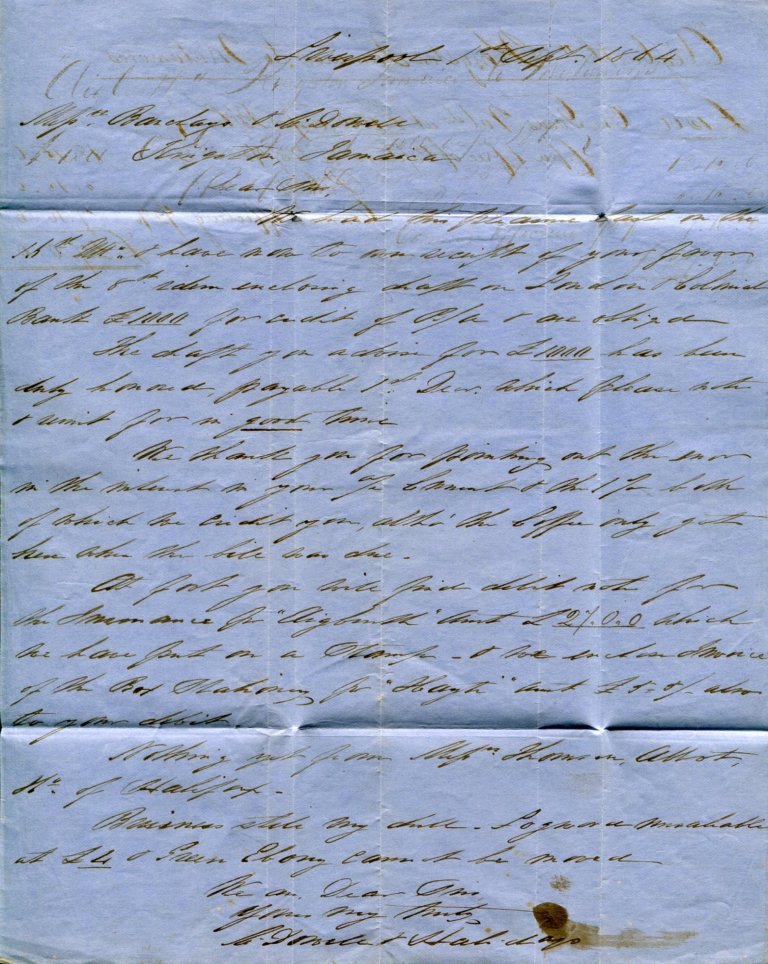 Liverpool 1st Sept. 1864
Messrs Barclays & McDowell
Kingston, Jamaica
Dear Sirs,
We had this pleasure last on the
16th Ulto. & have now to own receipt of your favor
of the 8th idem enclosing draft on London & Colonial
Bank £1000 for credit of & are obliged
The draft you advise for £1000 has been
duly honored, payable 1st Decr. which please note
& remit for in good time
We thank you for pointing out the error
in the interest in your a/c Current & the both
of which we credit you, altho' the Coffee only got
here when the bill was due.
At foot you will find debit note for
the Insurance pr "Aigburth" amt £ which
we have put on a Stamp - & we enclose Invoice
of the Box Stationery pr "Hayti" amt £5.5/- also
to your debit
Nothing yet from Messrs Thomson, Abbot,
of Halifax -
Business still very dull - Logwood unsaleable
at £4 & Green Ebony cannot be moved
We are, Dear Sirs
Yours very truly
McDowell & Halidays